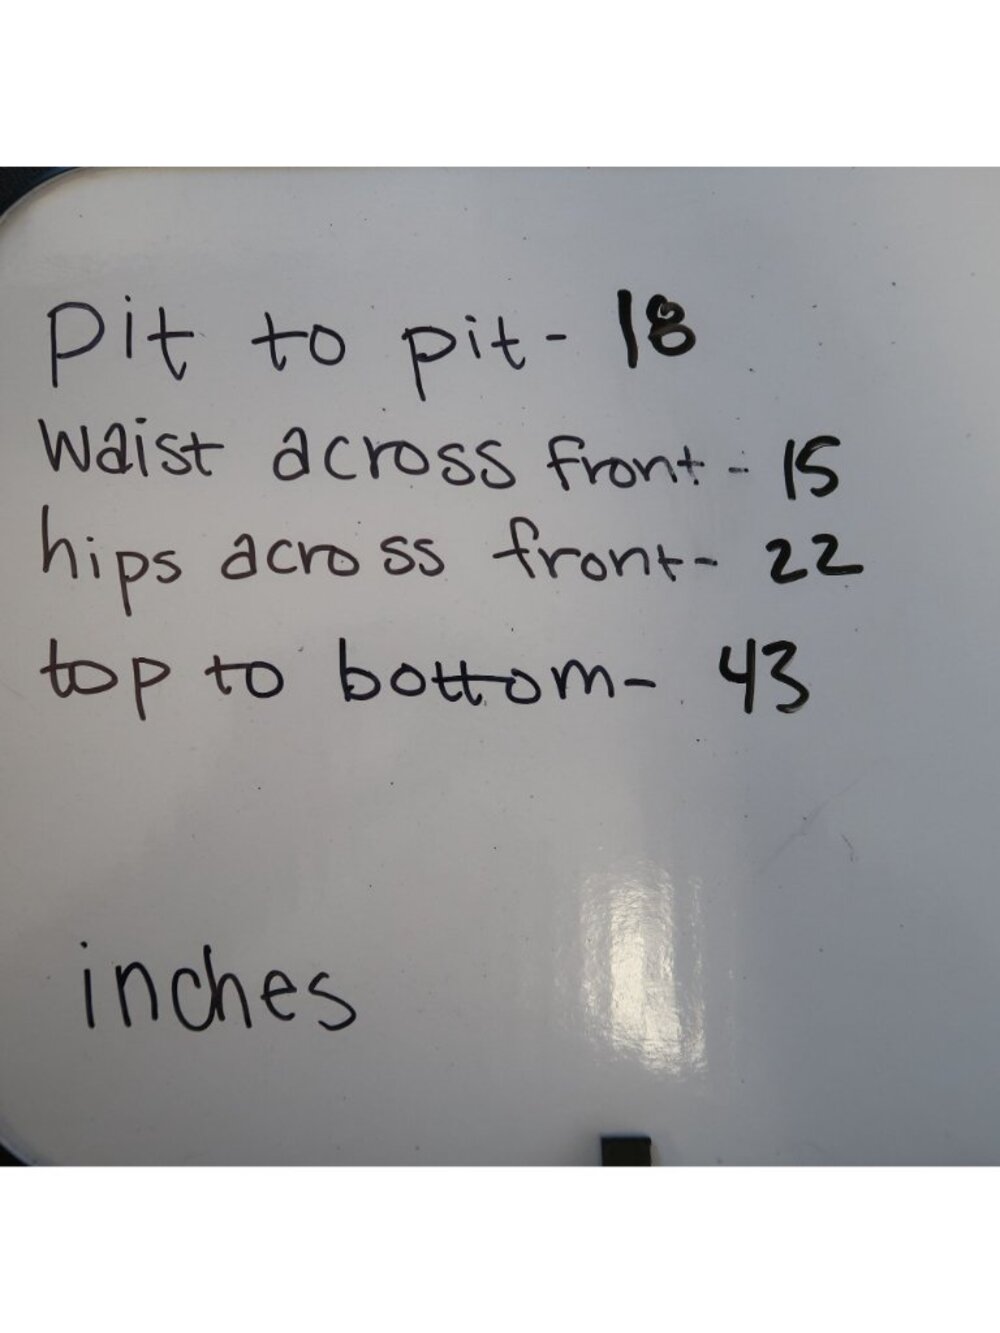 pit to pit- 18
waist across front- 15
hips across front- 22
top to bottom- 43
inches